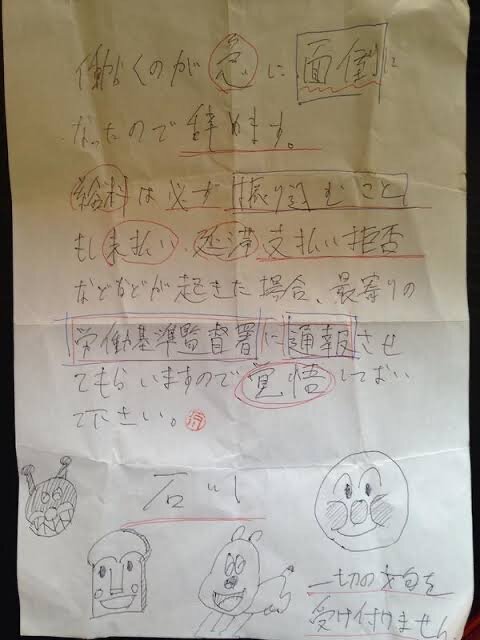 働くのが急に面倒に
なったので辞めます。
給料は必ず振り込むこと
もし未払い、延滞、支払い拒否
などなどが起きた場合、最寄りの
労働基準監督署に通報させ
てもらいますので覚悟しておい
て下さい。
石川
一切の文句を
受け付けません